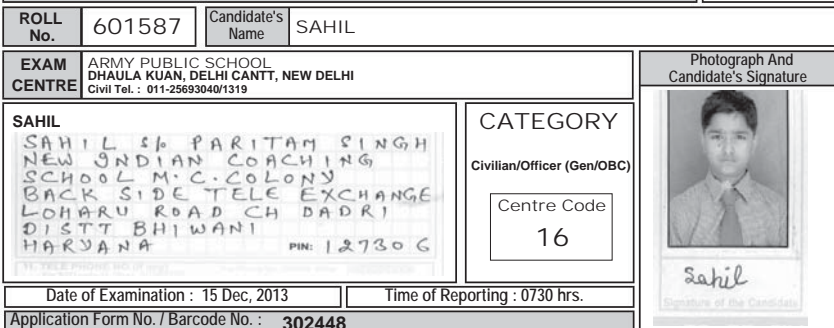 ROLL No. 601587 Candidate's Name SAHIL
EXAM CENTRE ARMY PUBLIC SCHOOL
DHAULA KUAN, DELHI CANTT, NEW DELHI
Civil Tel. : 011-25693040/1319
Photograph And
Candidate's Signature
SAHIL
SAHIL S/o PARITAM SINGH
NEW INDIAN COACHING
SCHOOL M.C.COLONY
BACK SIDE TELE EXCHANGE
LOHARU ROAD CH DADRI
DISTT BHIWANI
HARYANA PIN: 127306
11. TELE PHONE NO (if any)
CATEGORY
Civilian/Officer (Gen/OBC)
Centre Code
16
Sahil
Signature of the Candidate
Date of Examination : 15 Dec, 2013 Time of Reporting : 0730 hrs.
Application Form No. / Barcode No. : 302448